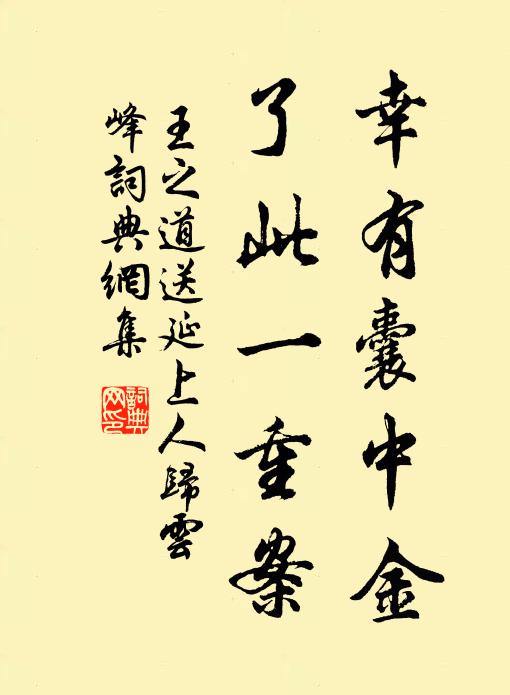 幸有囊中金
了此一重案
王之道送延上人歸雲
峰詞典網集
詞典
网印